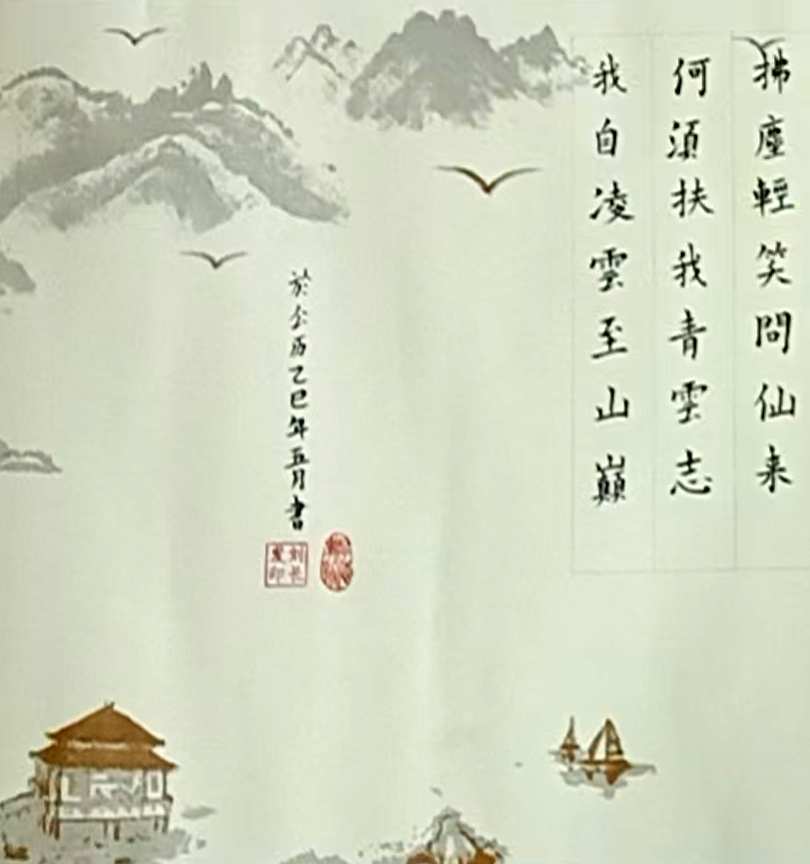 拂塵輕笑問仙来
何須扶我青雲志
我自凌雲至山巔
於公历乙巳年五月書